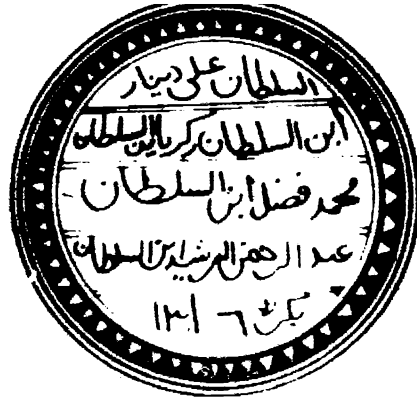 السلطان على دينار
ابن السلطان زكريا ابن السلطان
محمد فضل ابن السلطان
عبد الرحمن الرشيد ابن السلطان
بكر ١٣١٦